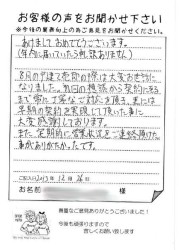 お客様の声をお聞かせ下さい
※今後の業務向上の為ご意見をお聞かせください。
あけましておめでとうございます。
(年内に届いていたら申し訳ありません)
8月の戸建て売却の際は大変お世話に
なりました。初回の相談から契約に至る
まで常に丁寧なご対応を頂き、更には
早期の契約を実現して頂いた事に
大変感謝しております。
また、定期的に営業状況をご連絡頂けた
事がありがたかったです。
ご記入日2019年12月26日
お名前
貴重なご意見ありがとうございました!
今後も頑張りますので
宜しくお願い致します